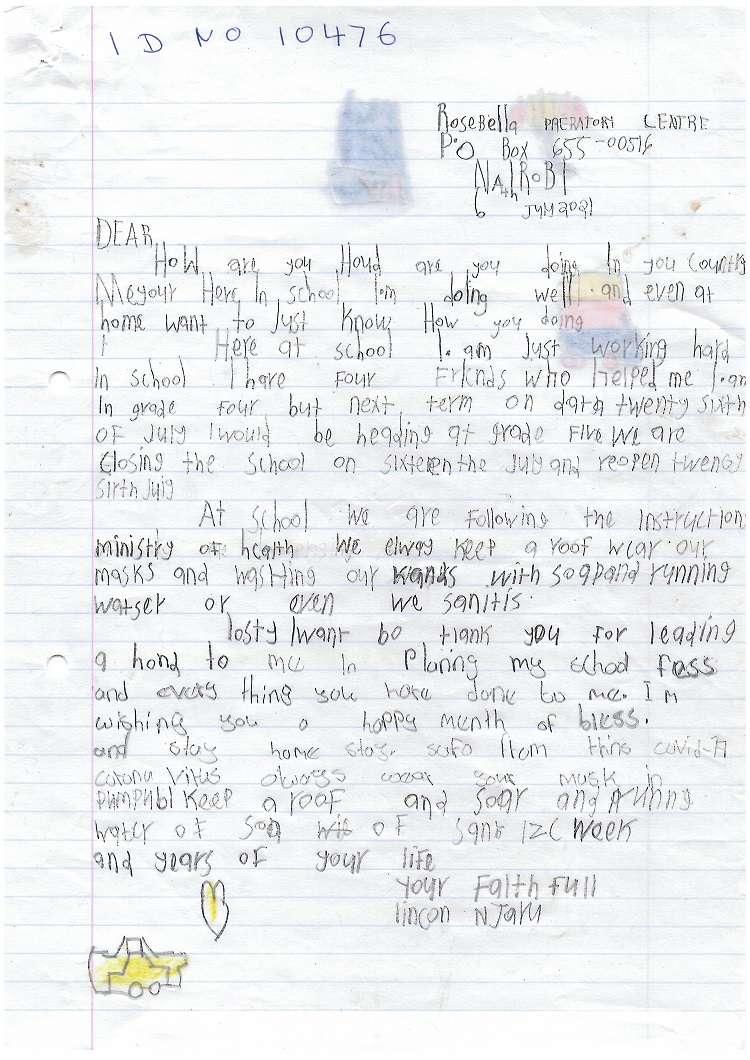 I D NO 10476
RoseBella PRERATORI CENTRE
P.O Box 655-00516
NAIRoBI
6th JULY 2021
DEAR,
How are you Houd are you doing In you Country
Meyour Here In school I.m doing well. and even at
home want to Just Know How you doing
I Here at school I.am Just working hard
In school I hare Four Friends who helped me I.am
In grade Four but next term on data twenty sixth
OF July I would be heading at grade Five we are
Closing the school on sixteen the July and reopen twengy
sirth July
At school we are Following the Instruction
ministry of health we elway Keep a roof wear our
masks and washing our hands with soap and running
watser or even we sanitis.
losty I want bo tiank you for leading
a hond to me In Planing my school fess
and every thing you hare done to me. I m
wishing you a happy month of bless.
and stay home stay safo from thins covid-19
corona Vitus always wear your mask in
pumpubl Keep a roof and soar and running
water of Soa wit of Sant 12C Week
and years of your life
your Faith Full
lincon NJaru